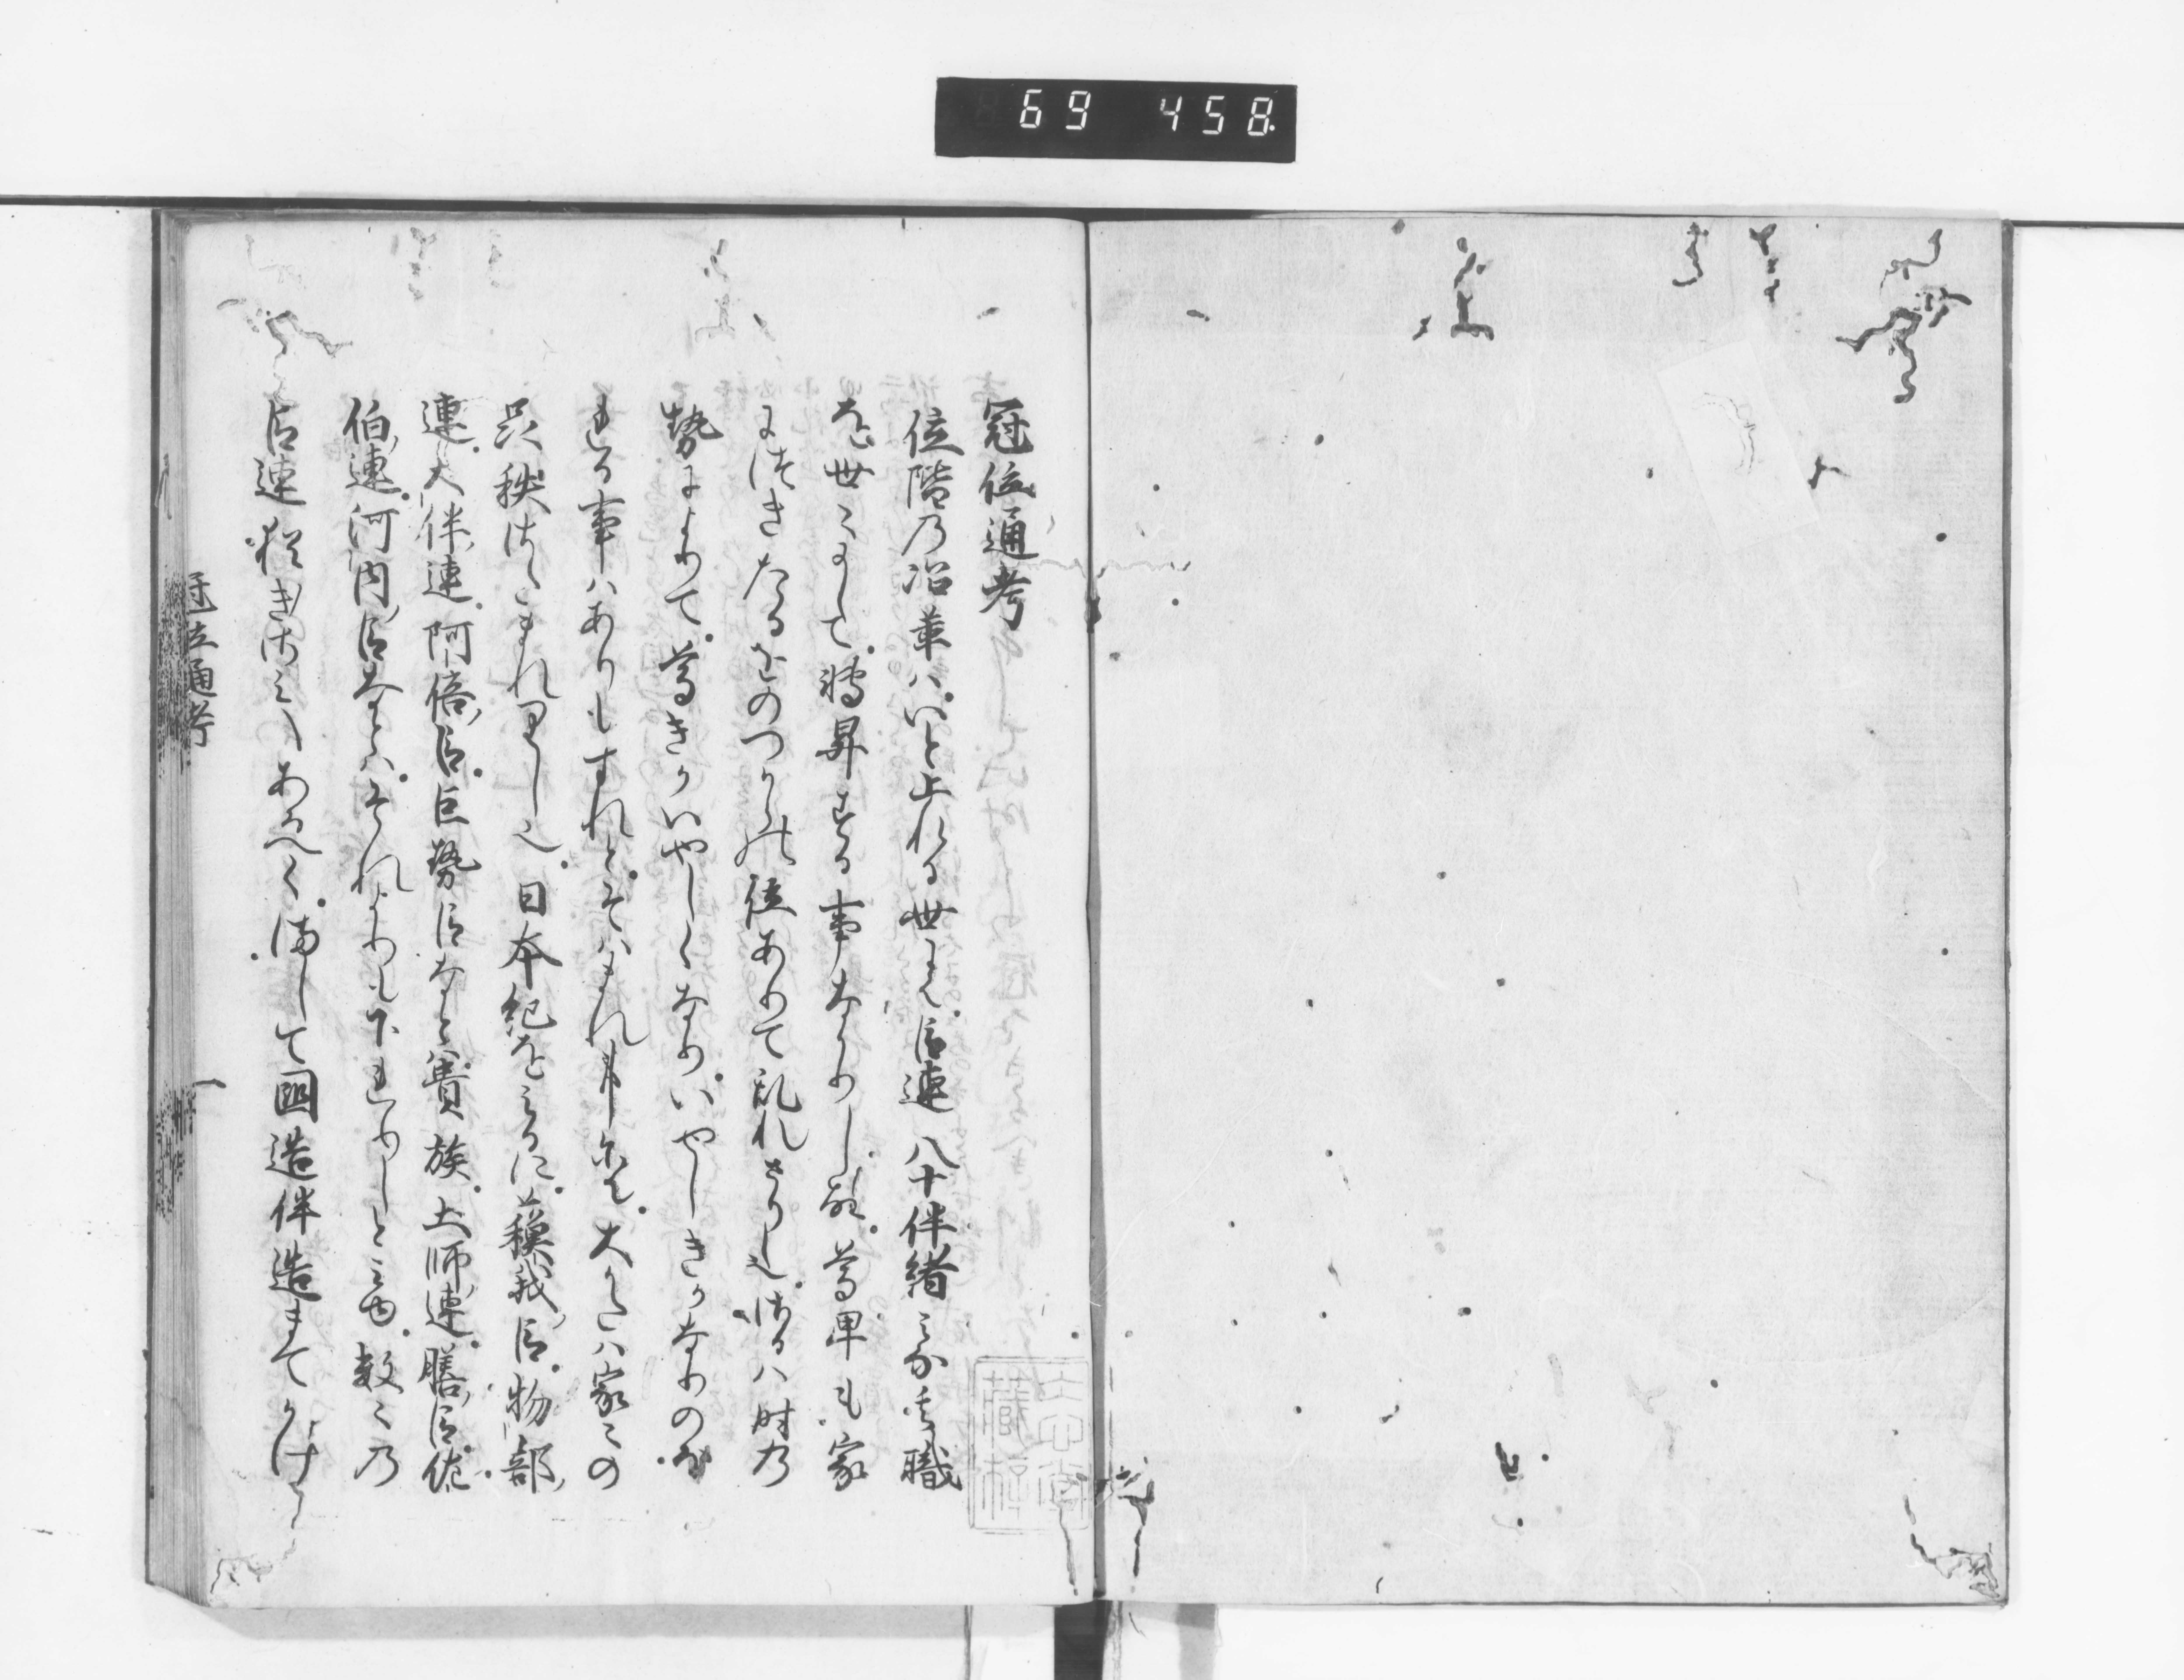 69 458
冠位通考
位階乃沿革ハいと上れる世には臣連八十伴緒みな其職
を世々にして轉昇する事なかりし故尊卑も家
につきたるをのつからの位ありて乱れさりしをさるハ時乃
勢によりて尊きかいやしくなりいやしきかなりのほ
れる事ハありもすれとそハまれまれにて大かたハ家々の
品秩はさたまれりしを日本紀をみるに蘇我臣物部
連大伴連阿倍臣巨勢臣なと貴族土師連膳臣佐
伯連河内臣なとハそれよりも下れりしとみゆ数々乃
臣連猶きはみあるへくまして国造伴造まてかけ
冠位通考
一
藏